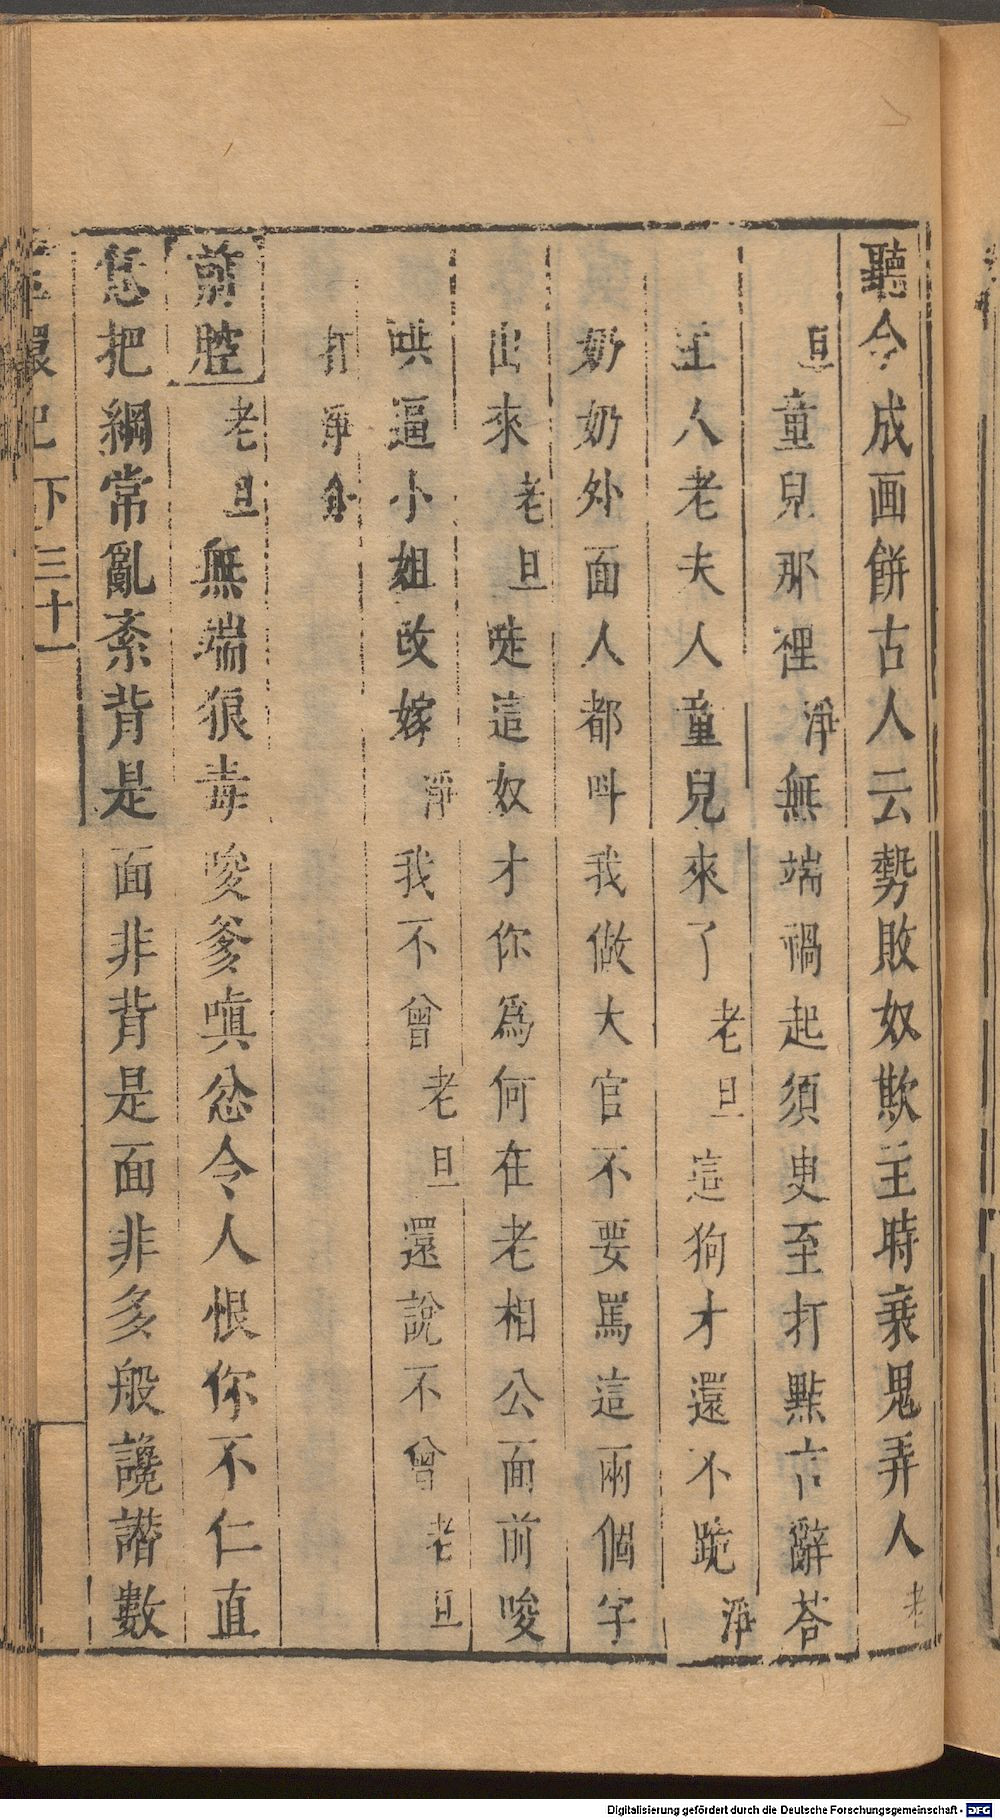 聽令成画餅古人云勢敗奴欺主時衰鬼弄人老
旦童兒那裡淨無端禍起須臾至打點言辭荅
主人老夫人童兒來了老旦這狗才還不跪淨
奶奶外面人都呌我做大官不要罵這兩個字
出來老旦唗這奴才你爲何在老相公面前唆
哄逼小姐改嫁淨我不曾老旦還說不曾老旦
打淨介
前腔老旦無端狠毒唆爹嗔忿令人恨你不仁直
恁把綱常亂紊背是面非背是面非多般讒譖數
環記下三十一
Digitalisierung gefördert durch die Deutsche Forschungsgemeinschaft - DFG